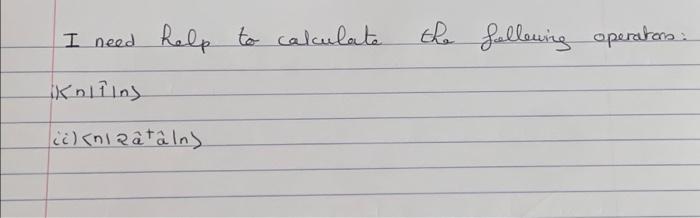 I need help to calculate the following operators:
i) <n|Î|n>
ii) <n|2â†â|n>